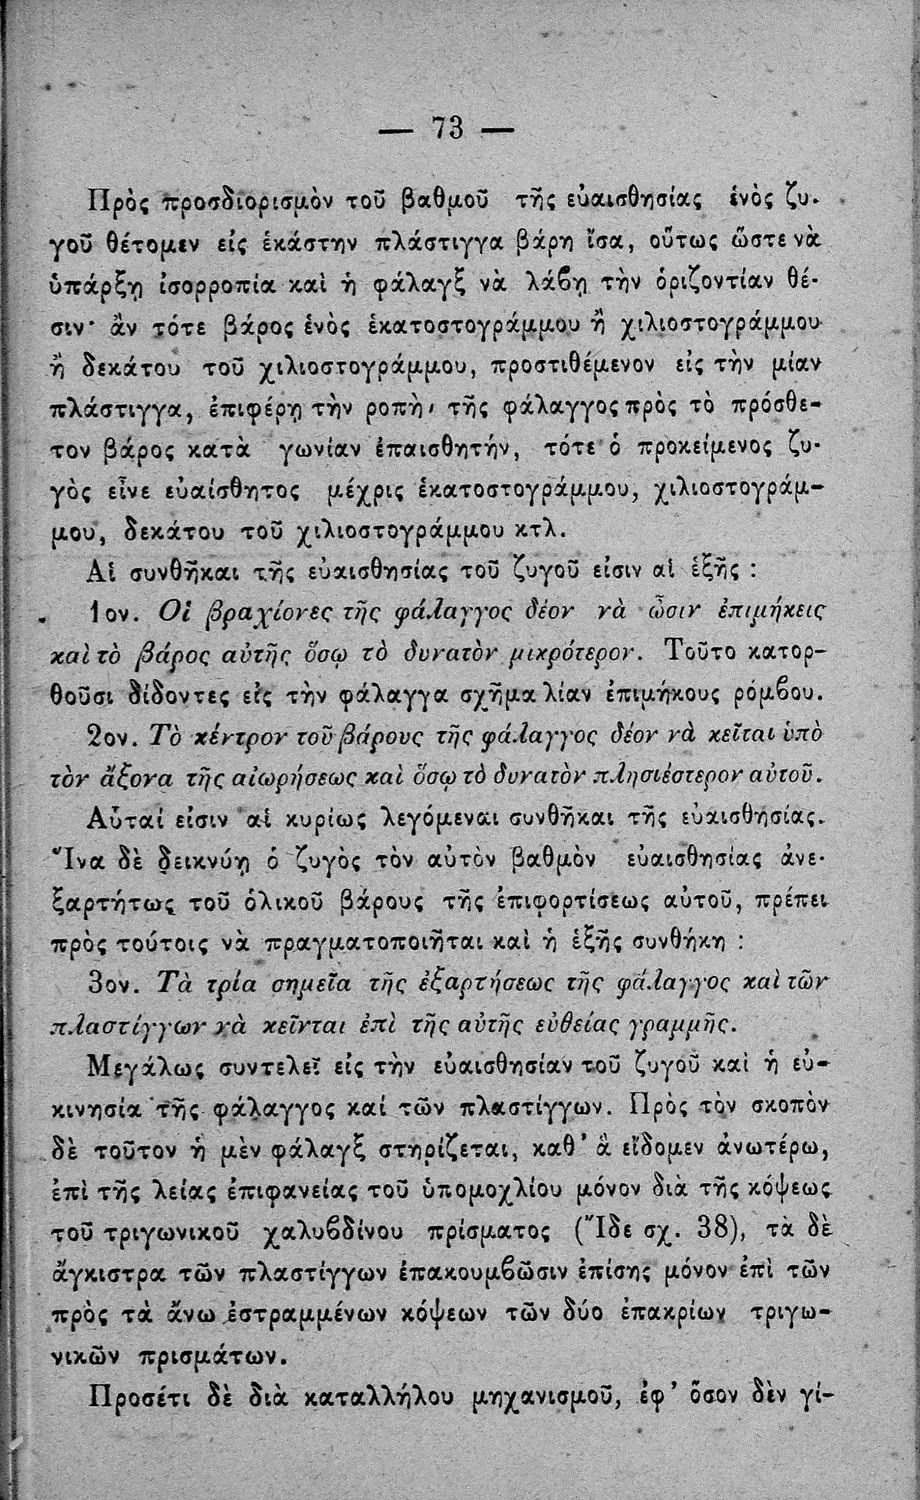 — 73 —
Πρὸς προσδιορισμὸν τοῦ βαθμοῦ τῆς εὐαισθησίας ἑνὸς ζυ-
γοῦ θέτομεν εἰς ἑκάστην πλάστιγγα βάρη ἴσα, οὕτως ὥστε νὰ
ὑπάρξῃ ἰσορροπία καὶ ἡ φάλαγξ νὰ λάβῃ τὴν ὁριζοντίαν θέ-
σιν· ἂν τότε βάρος ἑνὸς ἑκατοστογράμμου ἢ χιλιοστογράμμου
ἢ δεκάτου τοῦ χιλιοστογράμμου, προστιθέμενον εἰς τὴν μίαν
πλάστιγγα, ἐπιφέρῃ τὴν ροπὴν τῆς φάλαγγος πρὸς τὸ πρόσθε-
τον βάρος κατὰ γωνίαν ἐπαισθητήν, τότε ὁ προκείμενος ζυ-
γὸς εἶνε εὐαίσθητος μέχρις ἑκατοστογράμμου, χιλιοστογράμ-
μου, δεκάτου τοῦ χιλιοστογράμμου κτλ.
Αἱ συνθῆκαι τῆς εὐαισθησίας τοῦ ζυγοῦ εἰσιν αἱ ἑξῆς :
1ον. Οἱ βραχίονες τῆς φάλαγγος δέον νὰ ὦσιν ἐπιμήκεις
καὶ τὸ βάρος αὐτῆς ὅσῳ τὸ δυνατὸν μικρότερον. Τοῦτο κατορ-
θοῦσι δίδοντες εἰς τὴν φάλαγγα σχῆμα λίαν ἐπιμήκους ρόμβου.
2ον. Τὸ κέντρον τοῦ βάρους τῆς φάλαγγος δέον νὰ κεῖται ὑπὸ
τὸν ἄξονα τῆς αἰωρήσεως καὶ ὅσῳ τὸ δυνατὸν πλησιέστερον αὐτοῦ.
Αὗταί εἰσιν αἱ κυρίως λεγόμεναι συνθῆκαι τῆς εὐαισθησίας.
Ἵνα δὲ δεικνύῃ ὁ ζυγὸς τὸν αὐτὸν βαθμὸν εὐαισθησίας ἀνε-
ξαρτήτως τοῦ ὁλικοῦ βάρους τῆς ἐπιφορτίσεως αὐτοῦ, πρέπει
πρὸς τούτοις νὰ πραγματοποιῆται καὶ ἡ ἑξῆς συνθήκη :
3ον. Τὰ τρία σημεῖα τῆς ἐξαρτήσεως τῆς φάλαγγος καὶ τῶν
πλαστίγγων νὰ κεῖνται ἐπὶ τῆς αὐτῆς εὐθείας γραμμῆς.
Μεγάλως συντελεῖ εἰς τὴν εὐαισθησίαν τοῦ ζυγοῦ καὶ ἡ εὐ-
κινησία τῆς φάλαγγος καί τῶν πλαστίγγων. Πρὸς τὸν σκοπὸν
δὲ τοῦτον ἡ μὲν φάλαγξ στηρίζεται, καθ’ ἃ εἴδομεν ἀνωτέρω,
ἐπὶ τῆς λείας ἐπιφανείας τοῦ ὑπομοχλίου μόνον διὰ τῆς κόψεως
τοῦ τριγωνικοῦ χαλυβδίνου πρίσματος (Ἴδε σχ. 38), τὰ δὲ
ἄγκιστρα τῶν πλαστίγγων ἐπακουμβῶσιν ἐπίσης μόνον ἐπὶ τῶν
πρὸς τὰ ἄνω ἐστραμμένων κόψεων τῶν δύο ἐπακρίων τριγω-
νικῶν πρισμάτων.
Προσέτι δὲ διὰ καταλλήλου μηχανισμοῦ, ἐφ’ ὅσον δὲν γί-